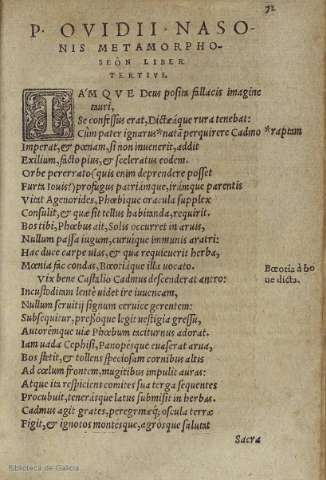 32
P. OVIDII. NASO-
NIS METAMORPHO-
SEΩN LIBER
TERTIVS.
IAMQVE Deus posita fallacis imagine
tauri,
Se confessus erat, Dictæáque rura tenebat:
Cùm pater ignarus *natā perquirere Cadmo *raptam
Imperat, & pœnam, si non inuenerit, addit
Exilium, facto pius, & sceleratus eodem.
Orbe pererrato (quis enim deprendere posset
Furta Iouis?) profugus patriámque, irámque parentis
Vitat Agenorides, Phœbique oracula supplex
Consulit, & quæ sit tellus habitanda, requirit.
Bos tibi, Phœbus ait, Solis occurret in aruis,
Nullum passa iugum, curuique immunis aratri:
Hac duce carpe uias, & qua requieuerit herba,
Mœnia fac condas, Bœotiáque illa uocato.
Bœotia à bo
ue dicta.
Vix bene Castalio Cadmus descenderat antro:
Incustoditam lentè uidet ire iuuencam,
Nullum seruitij signum ceruice gerentem:
Subsequitur, pressóque legit uestigia gressu,
Autorémque uiæ Phœbum taciturnus adorat.
Iam uada Cephisi, Panopésque euaserat arua,
Bos stetit, & tollens speciosam cornibus altis
Ad cœlum frontem, mugitibus impulit auras:
Atque ita respiciens comites sua terga sequentes
Procubuit, tenerásque latus submisit in herbas.
Cadmus agit grates, peregrinæq; oscula terræ
Figit, & ignotos montesque, agrosque salutat
Sacra
Biblioteca de Galicia